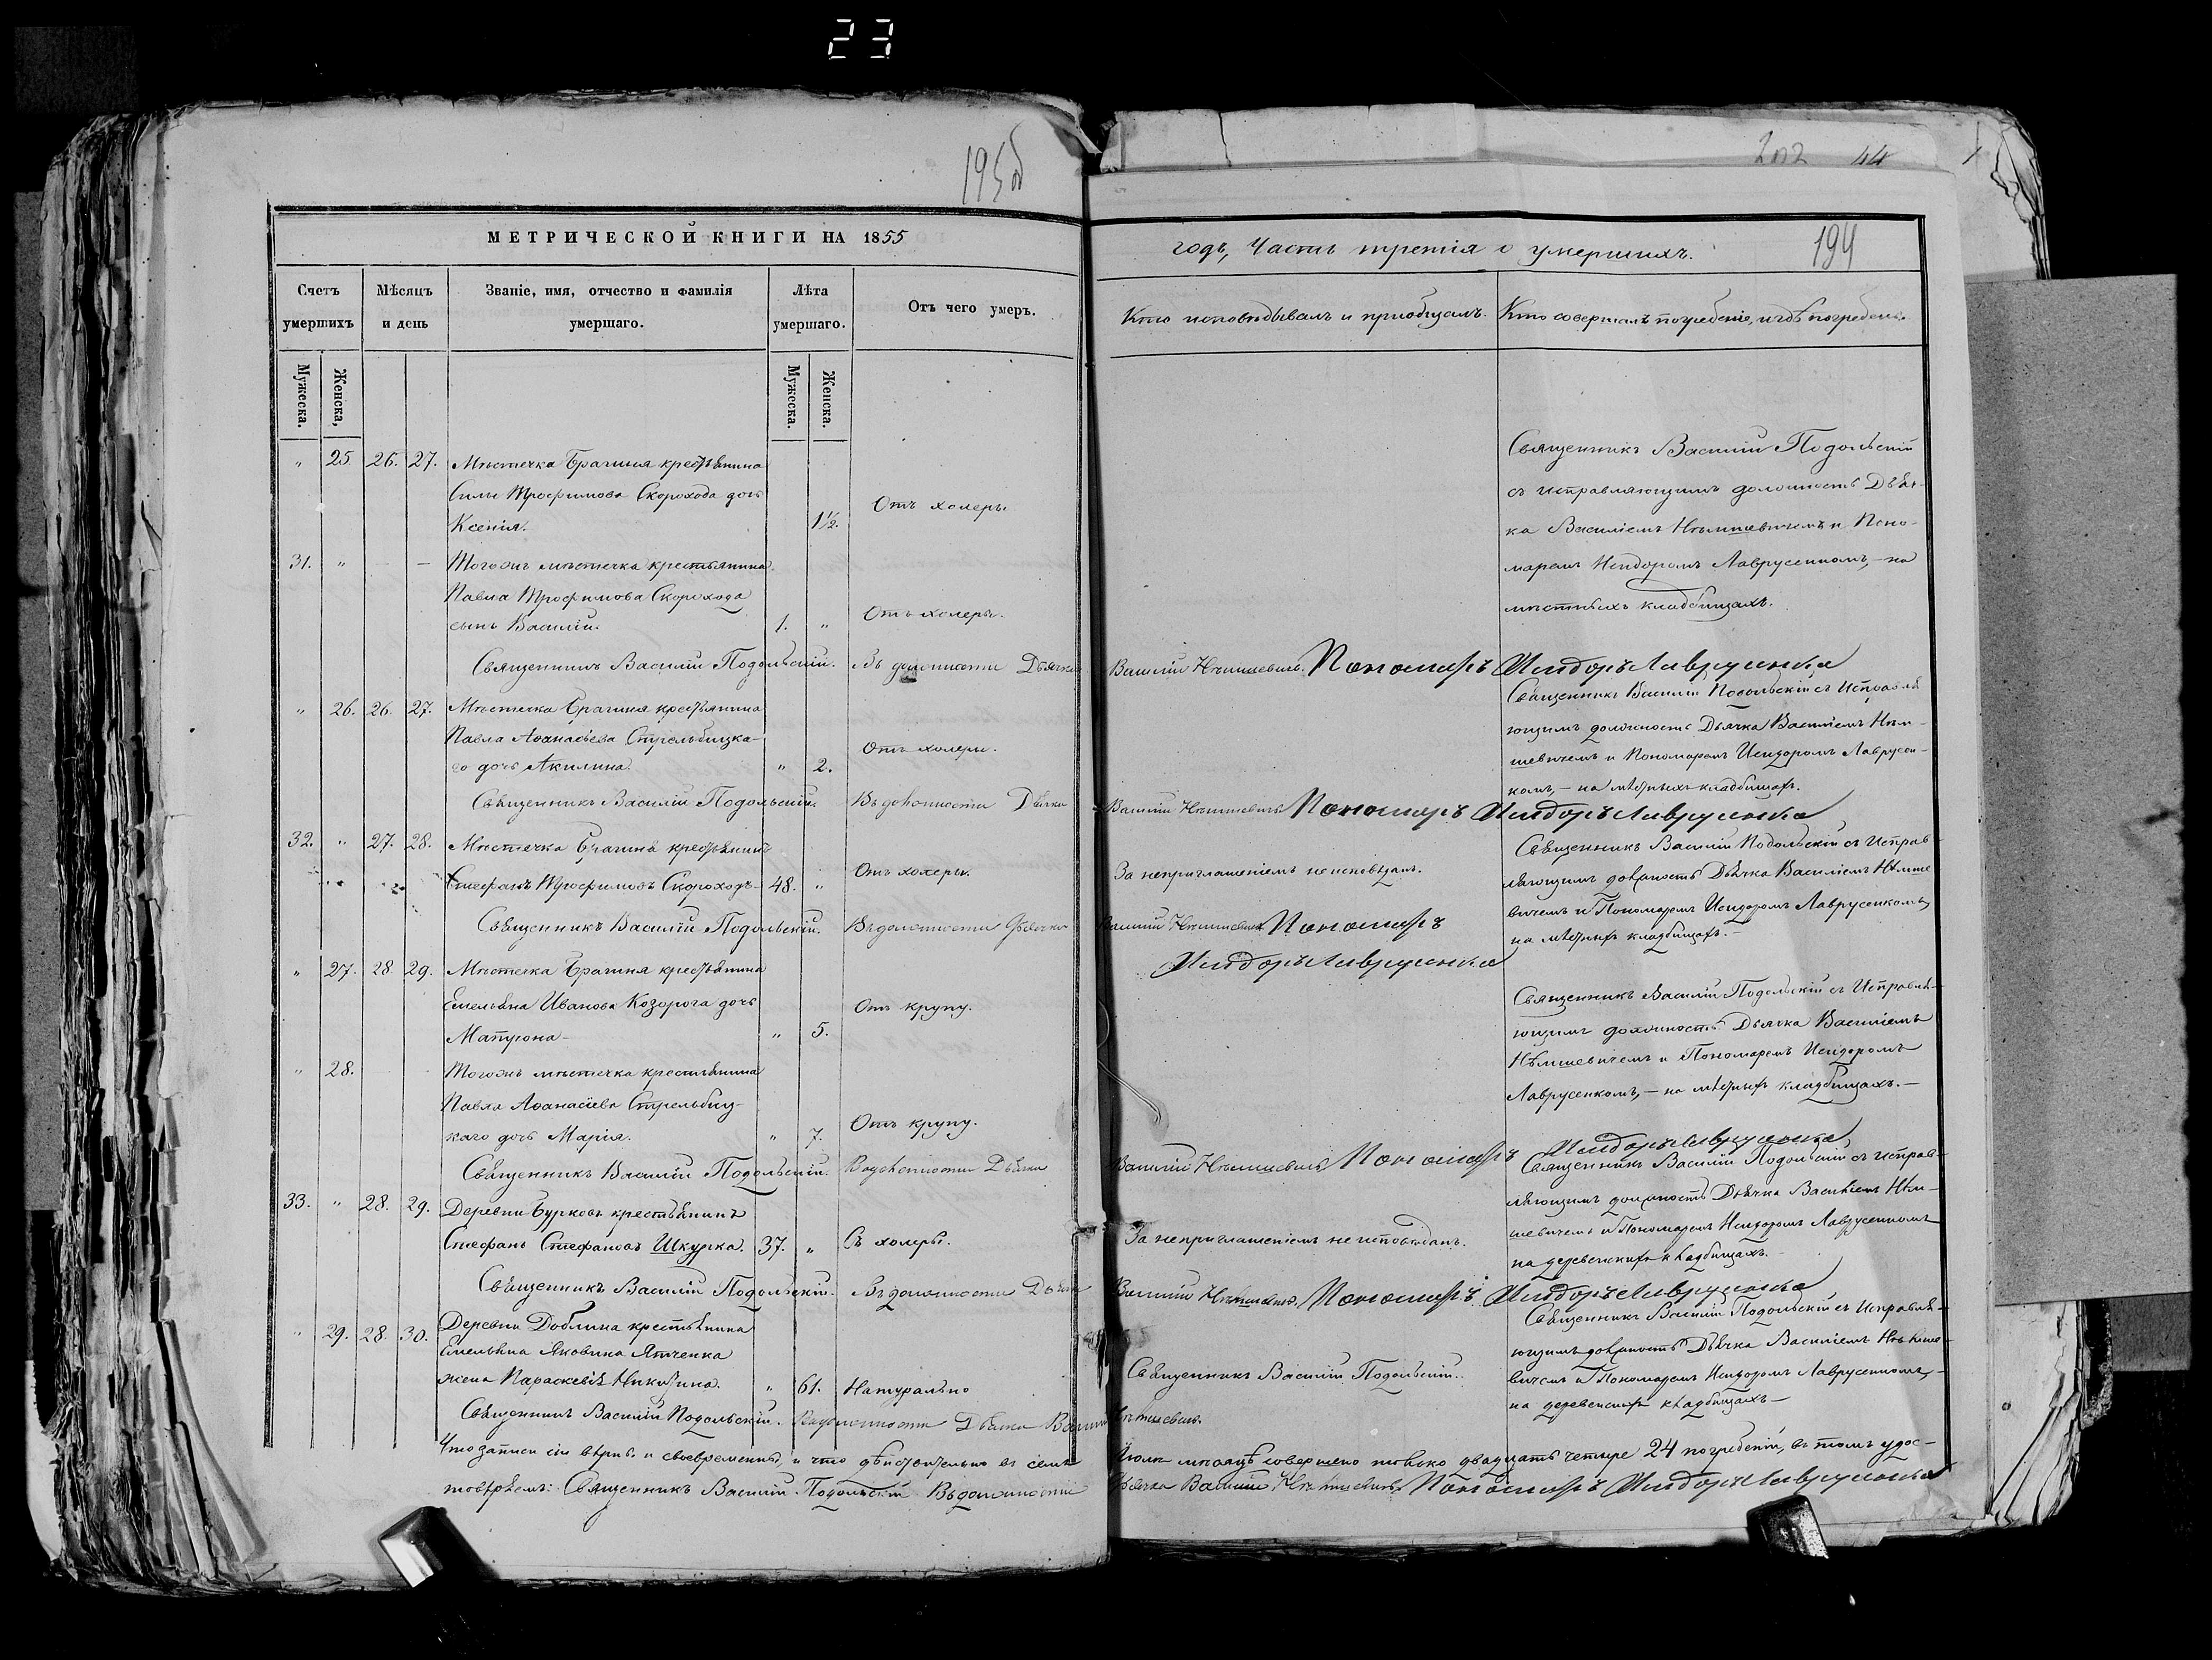 23
195 об
202 44
МЕТРИЧЕСКОЙ КНИГИ НА 1855
годъ, Часть третія о умершихъ.
194
Счетъ умершихъ
Мѣсяцъ и день
Званіе, имя, отчество и фамилія умершаго.
Лѣта умершаго.
Отъ чего умеръ.
Кто исповѣдывалъ и пріобщалъ.
Кто совершалъ погребеніе, и гдѣ погребены.
Мужеска.
Женска,
Мужеска.
Женска.
" 25 26. 27. Мѣстечка Брагиня крестьянина
Силы Трофимова Скорохода дочь
Ксенія. 1½. Отъ холеры.
Священникъ Василій Подольскій
съ исправляющимъ должность Дьяч-
ка Василіемъ Нѣмшевичемъ и Поно-
маремъ Исидоромъ Лаврусенкомъ,- на
мѣстныхъ кладбищахъ.
31. " - - Тогожъ мѣстечка крестьянина
Павла Трофимова Скорохода
сынъ Василій. 1. " Отъ холеры.
Священникъ Василій Подольскій. Въ должности Дьячка Василій Нѣмшевичъ. Пономарь Исидоръ Лаврусенко
" 26. 26. 27. Мѣстечка Брагиня крестьянина
Павла Аѳанасіева Стрельбицка-
го дочь Акилина. " 2. Отъ холеры.
Священникъ Василій Подольскій съ исправля
ющимъ должность Дьячка Василіемъ Нѣм-
шевичемъ и Пономаремъ Исидоромъ Лаврусен-
комъ,- на мѣстныхъ кладбищахъ.
Священникъ Василій Подольскій. Въ должности Дьячка Василій Нѣмшевичъ Пономарь Исидоръ Лаврусенко
32. " 27. 28. Мѣстечка Брагина крестьянинъ
Стефанъ Трофимовъ Скороходъ- 48. " Отъ холеры. За неприглашеніемъ не исповѣданъ.
Священникъ Василій Подольскій съ исправ-
ляющимъ должность Дьячка Василіемъ Нѣмше
вичемъ и Пономаремъ Исидоромъ Лаврусенкомъ,
на мѣстныхъ кладбищахъ.-
Священникъ Василій Подольскій. Въ должности Дьячка Василій Нѣмшевичъ Пономарь
Исидоръ Лаврусенко
" 27. 28. 29. Мѣстечка Брагиня крестьянина
Емельяна Иванова Козорога дочь
Матрона- " 5. Отъ крупу.
Священникъ Василій Подольскій съ исправля-
ющимъ должность Дьячка Василіемъ
Нѣмшевичемъ и Пономаремъ Исидоромъ
Лаврусенкомъ,- на мѣстныхъ кладбищахъ.-
" 28. Тогожъ мѣстечка крестьянина
Павла Аѳанасіева Стрельбиц-
каго дочь Марія. " 7. Отъ крупу.
Священникъ Василій Подольскій. Въ должности Дьячка Василій Нѣмшевичъ Пономарь Исидоръ Лаврусенко
33. " 28. 29. Деревни Бурковъ крестьянинъ
Стефанъ Стефановъ Шкурка. 37. " Съ холеры. За неприглашеніемъ не исповѣданъ.
Священникъ Василій Подольскій съ исправ-
ляющимъ должность Дьячка Василіемъ Нѣм-
шевичемъ и Пономаремъ Исидоромъ Лаврусенкомъ
на деревенскихъ кладбищахъ.-
Священникъ Василій Подольскій. Въ должности Дьячка Василій Нѣмшевичъ. Пономарь Исидоръ Лаврусенко
" 29. 28. 30. Деревни Доблина крестьянина
Емельяна Яковина Ятченка
жена Параскевія Никитина. " 61. Натурально
Священникъ Василій Подольскій.
Священникъ Василій Подольскій съ исправля-
ющимъ должность Дьячка Василіемъ Нѣмше-
вичемъ и Пономаремъ Исидоромъ Лаврусенкомъ,-
на деревенскихъ кладбищахъ-
Священникъ Василій Подольскій. Въ должности Дьячка Василій Нѣмшевичъ.
Что записи сіи вѣрны и своевременны, и что дѣйствительно въ семъ Іюлѣ мѣсяцѣ совершено только двадцать четыре 24 погребеній, въ томъ удос-
товѣряемъ: Священникъ Василій Подольскій Въ должности Дьячка Василій Нѣмшевичъ, Пономарь Исидоръ Лаврусенко